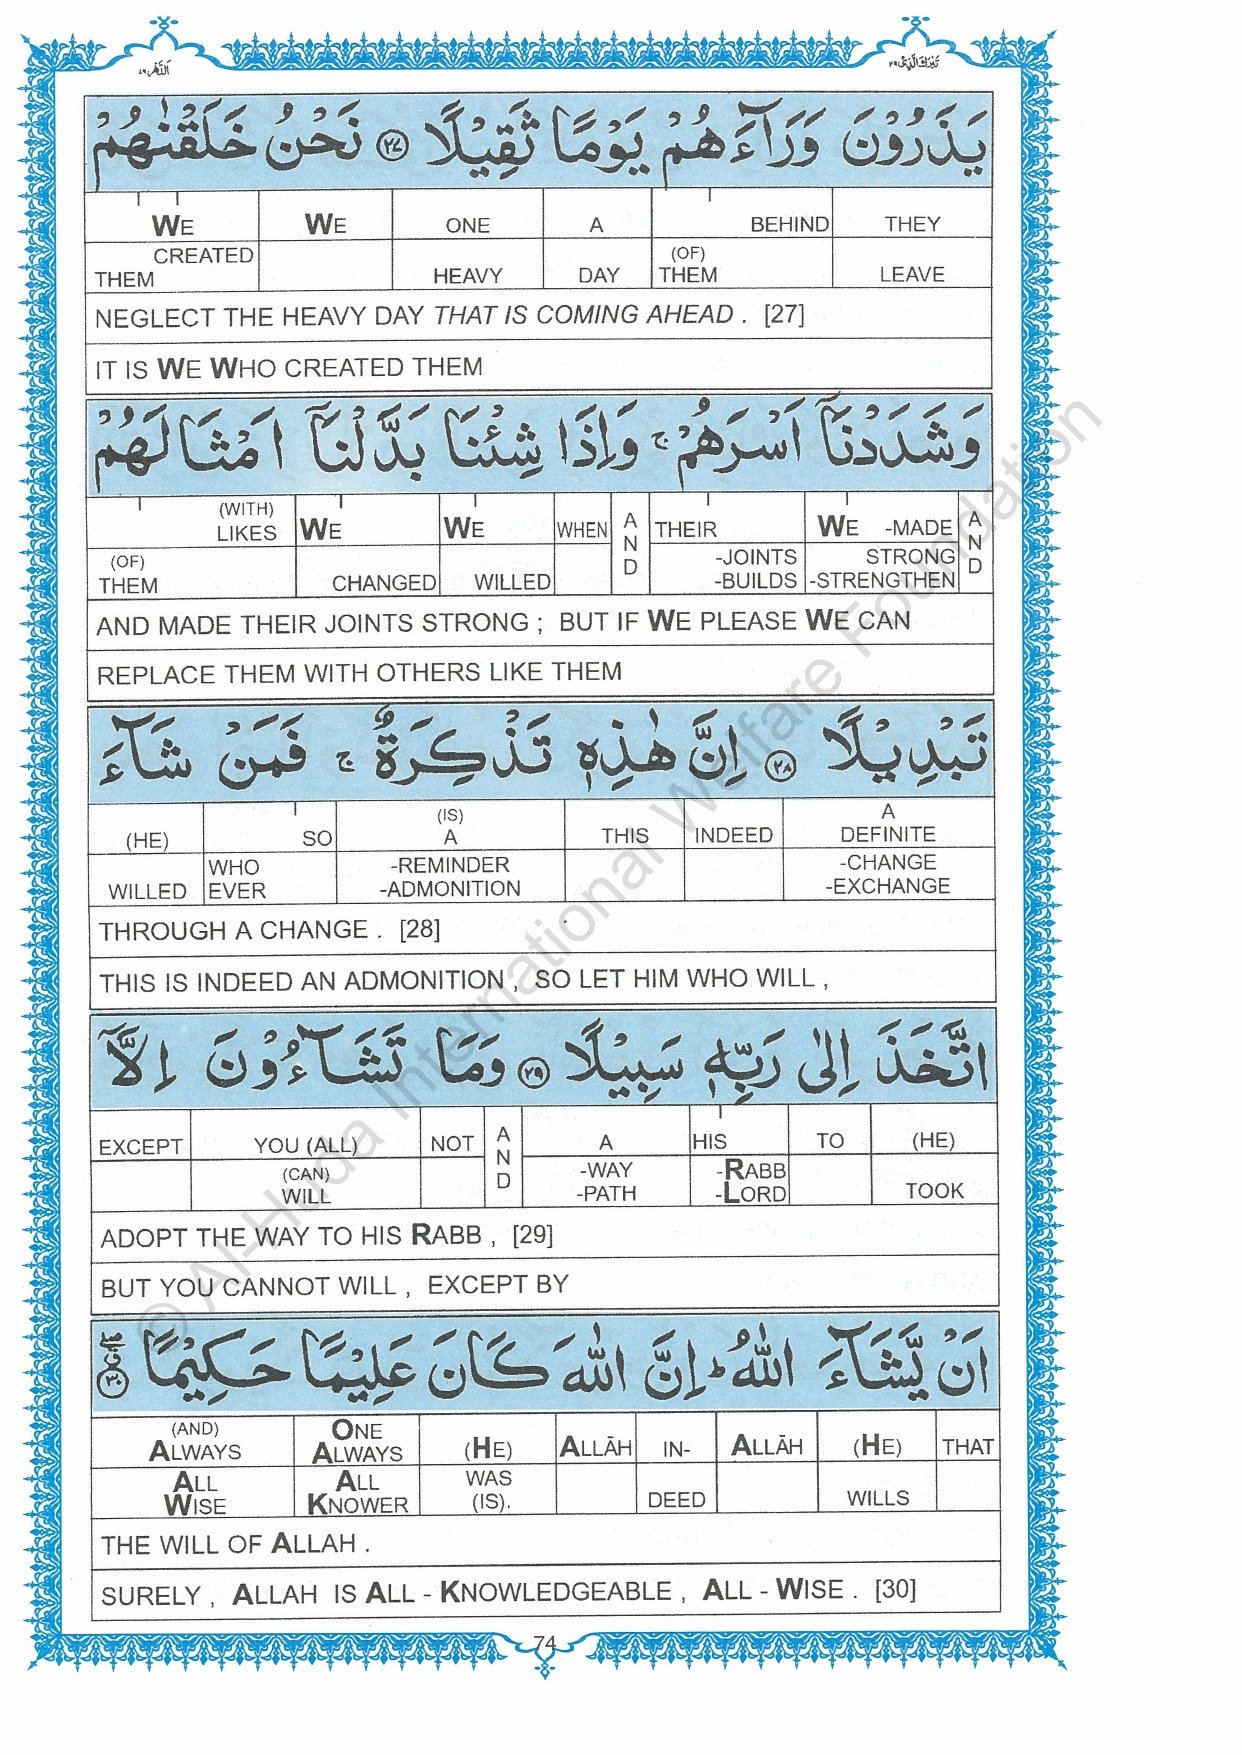 الدهر ٧٦
تبرك الذي ٢٩
يَذَرُوْنَ وَرَآءَهُمْ يَوْمًا ثَقِيْلًا ۝٢٧ نَحْنُ خَلَقْنٰهُمْ
WE WE ONE A BEHIND THEY
CREATED THEM HEAVY DAY (OF) THEM LEAVE
NEGLECT THE HEAVY DAY THAT IS COMING AHEAD . [27]
IT IS WE WHO CREATED THEM
وَشَدَدْنَآ اَسْرَهُمْ ۚ وَاِذَا شِئْنَا بَدَّلْنَآ اَمْثَالَهُمْ
(WITH) LIKES WE WE WHEN AND THEIR WE -MADE AND
(OF) THEM CHANGED WILLED -JOINTS -BUILDS STRONG -STRENGTHEN
AND MADE THEIR JOINTS STRONG ; BUT IF WE PLEASE WE CAN
REPLACE THEM WITH OTHERS LIKE THEM
تَبْدِيْلًا ۝٢٨ اِنَّ هٰذِهٖ تَذْكِرَةٌ ۚ فَمَنْ شَآءَ
(HE) SO (IS) A THIS INDEED A DEFINITE
WILLED WHO EVER -REMINDER -ADMONITION -CHANGE -EXCHANGE
THROUGH A CHANGE . [28]
THIS IS INDEED AN ADMONITION , SO LET HIM WHO WILL ,
اتَّخَذَ اِلٰى رَبِّهٖ سَبِيْلًا ۝٢٩ وَمَا تَشَآءُوْنَ اِلَّآ
EXCEPT YOU (ALL) NOT AND A HIS TO (HE)
(CAN) WILL -WAY -PATH -RABB -LORD TOOK
ADOPT THE WAY TO HIS RABB , [29]
BUT YOU CANNOT WILL , EXCEPT BY
اَنْ يَّشَآءَ اللّٰهُ ؕ اِنَّ اللّٰهَ كَانَ عَلِيْمًا حَكِيْمًا ۝٣٠
(AND) ALWAYS ONE ALWAYS (HE) ALLĀH IN- ALLĀH (HE) THAT
ALL WISE ALL KNOWER WAS (IS). DEED WILLS
THE WILL OF ALLAH .
SURELY , ALLAH IS ALL - KNOWLEDGEABLE , ALL - WISE . [30]
74
© Al-Huda International Welfare Foundation